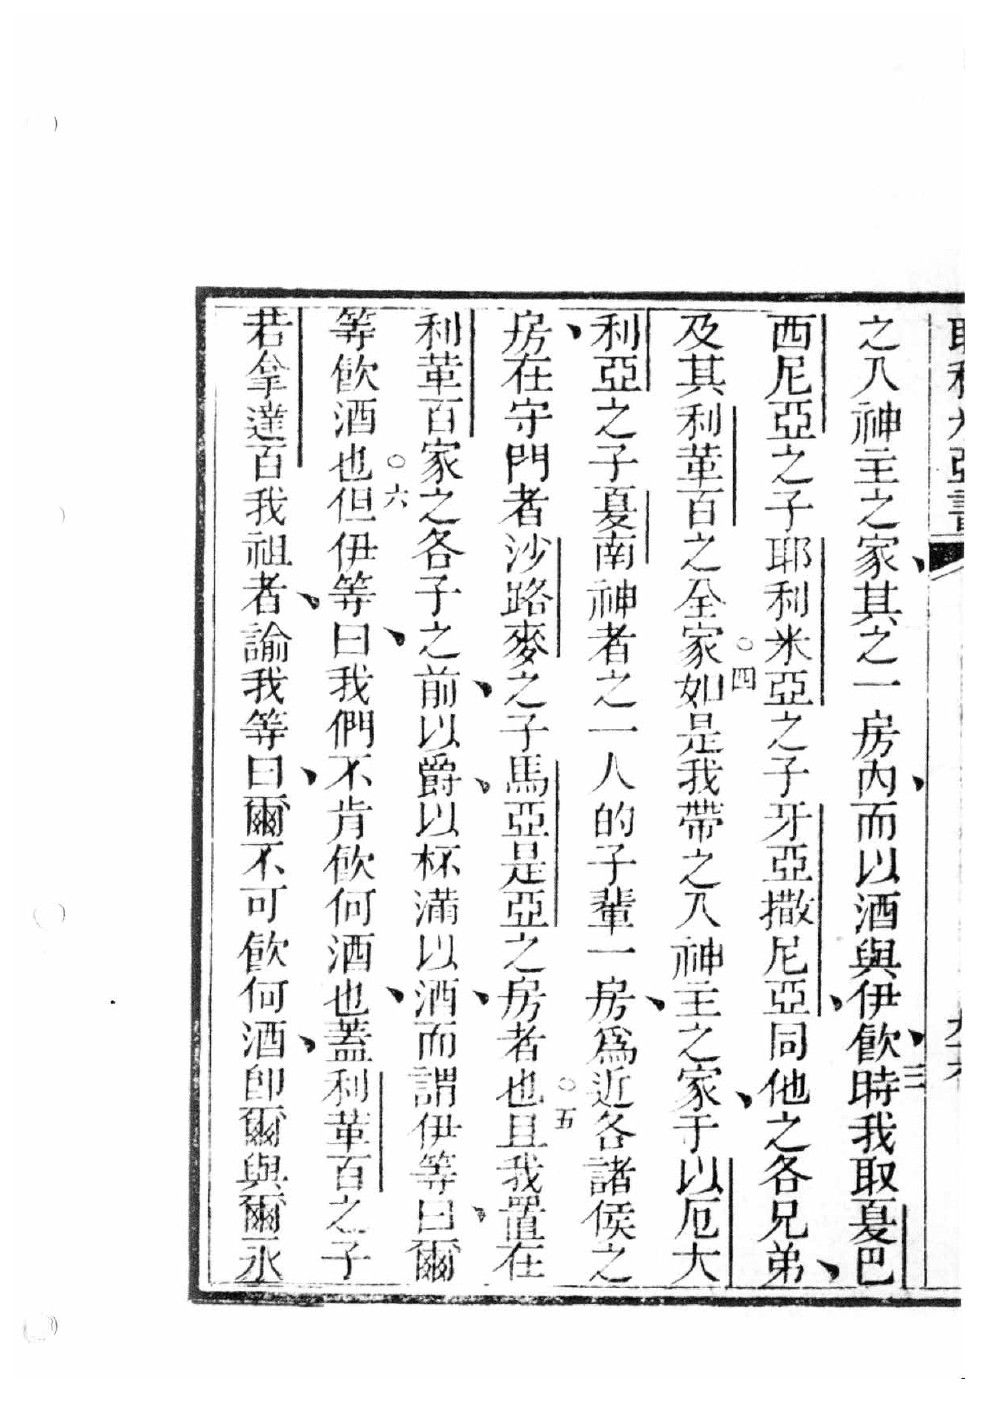 耶利米亞書
之入神主之家、其之一房內、而以酒與伊飲、三時我取戞巴
西尼亞之子耶利米亞之子牙亞撒尼亞、同他之各兄弟、
及其利䓶百之全家○四如是我帶之入神主之家、于以厄大
利亞之子戞南神者之一人的子輩一房、爲近各諸侯之
房、在守門者沙路麥之子馬亞是亞之房者也○五且我置在
利䓶百家之各子之前、以爵、以杯滿以酒、而謂伊等曰、爾
等飲酒也○六但伊等曰、我們不肯飲何酒也、蓋利䓶百之子
若拿達百我祖者、諭我等曰、爾不可飲何酒、卽爾與爾永